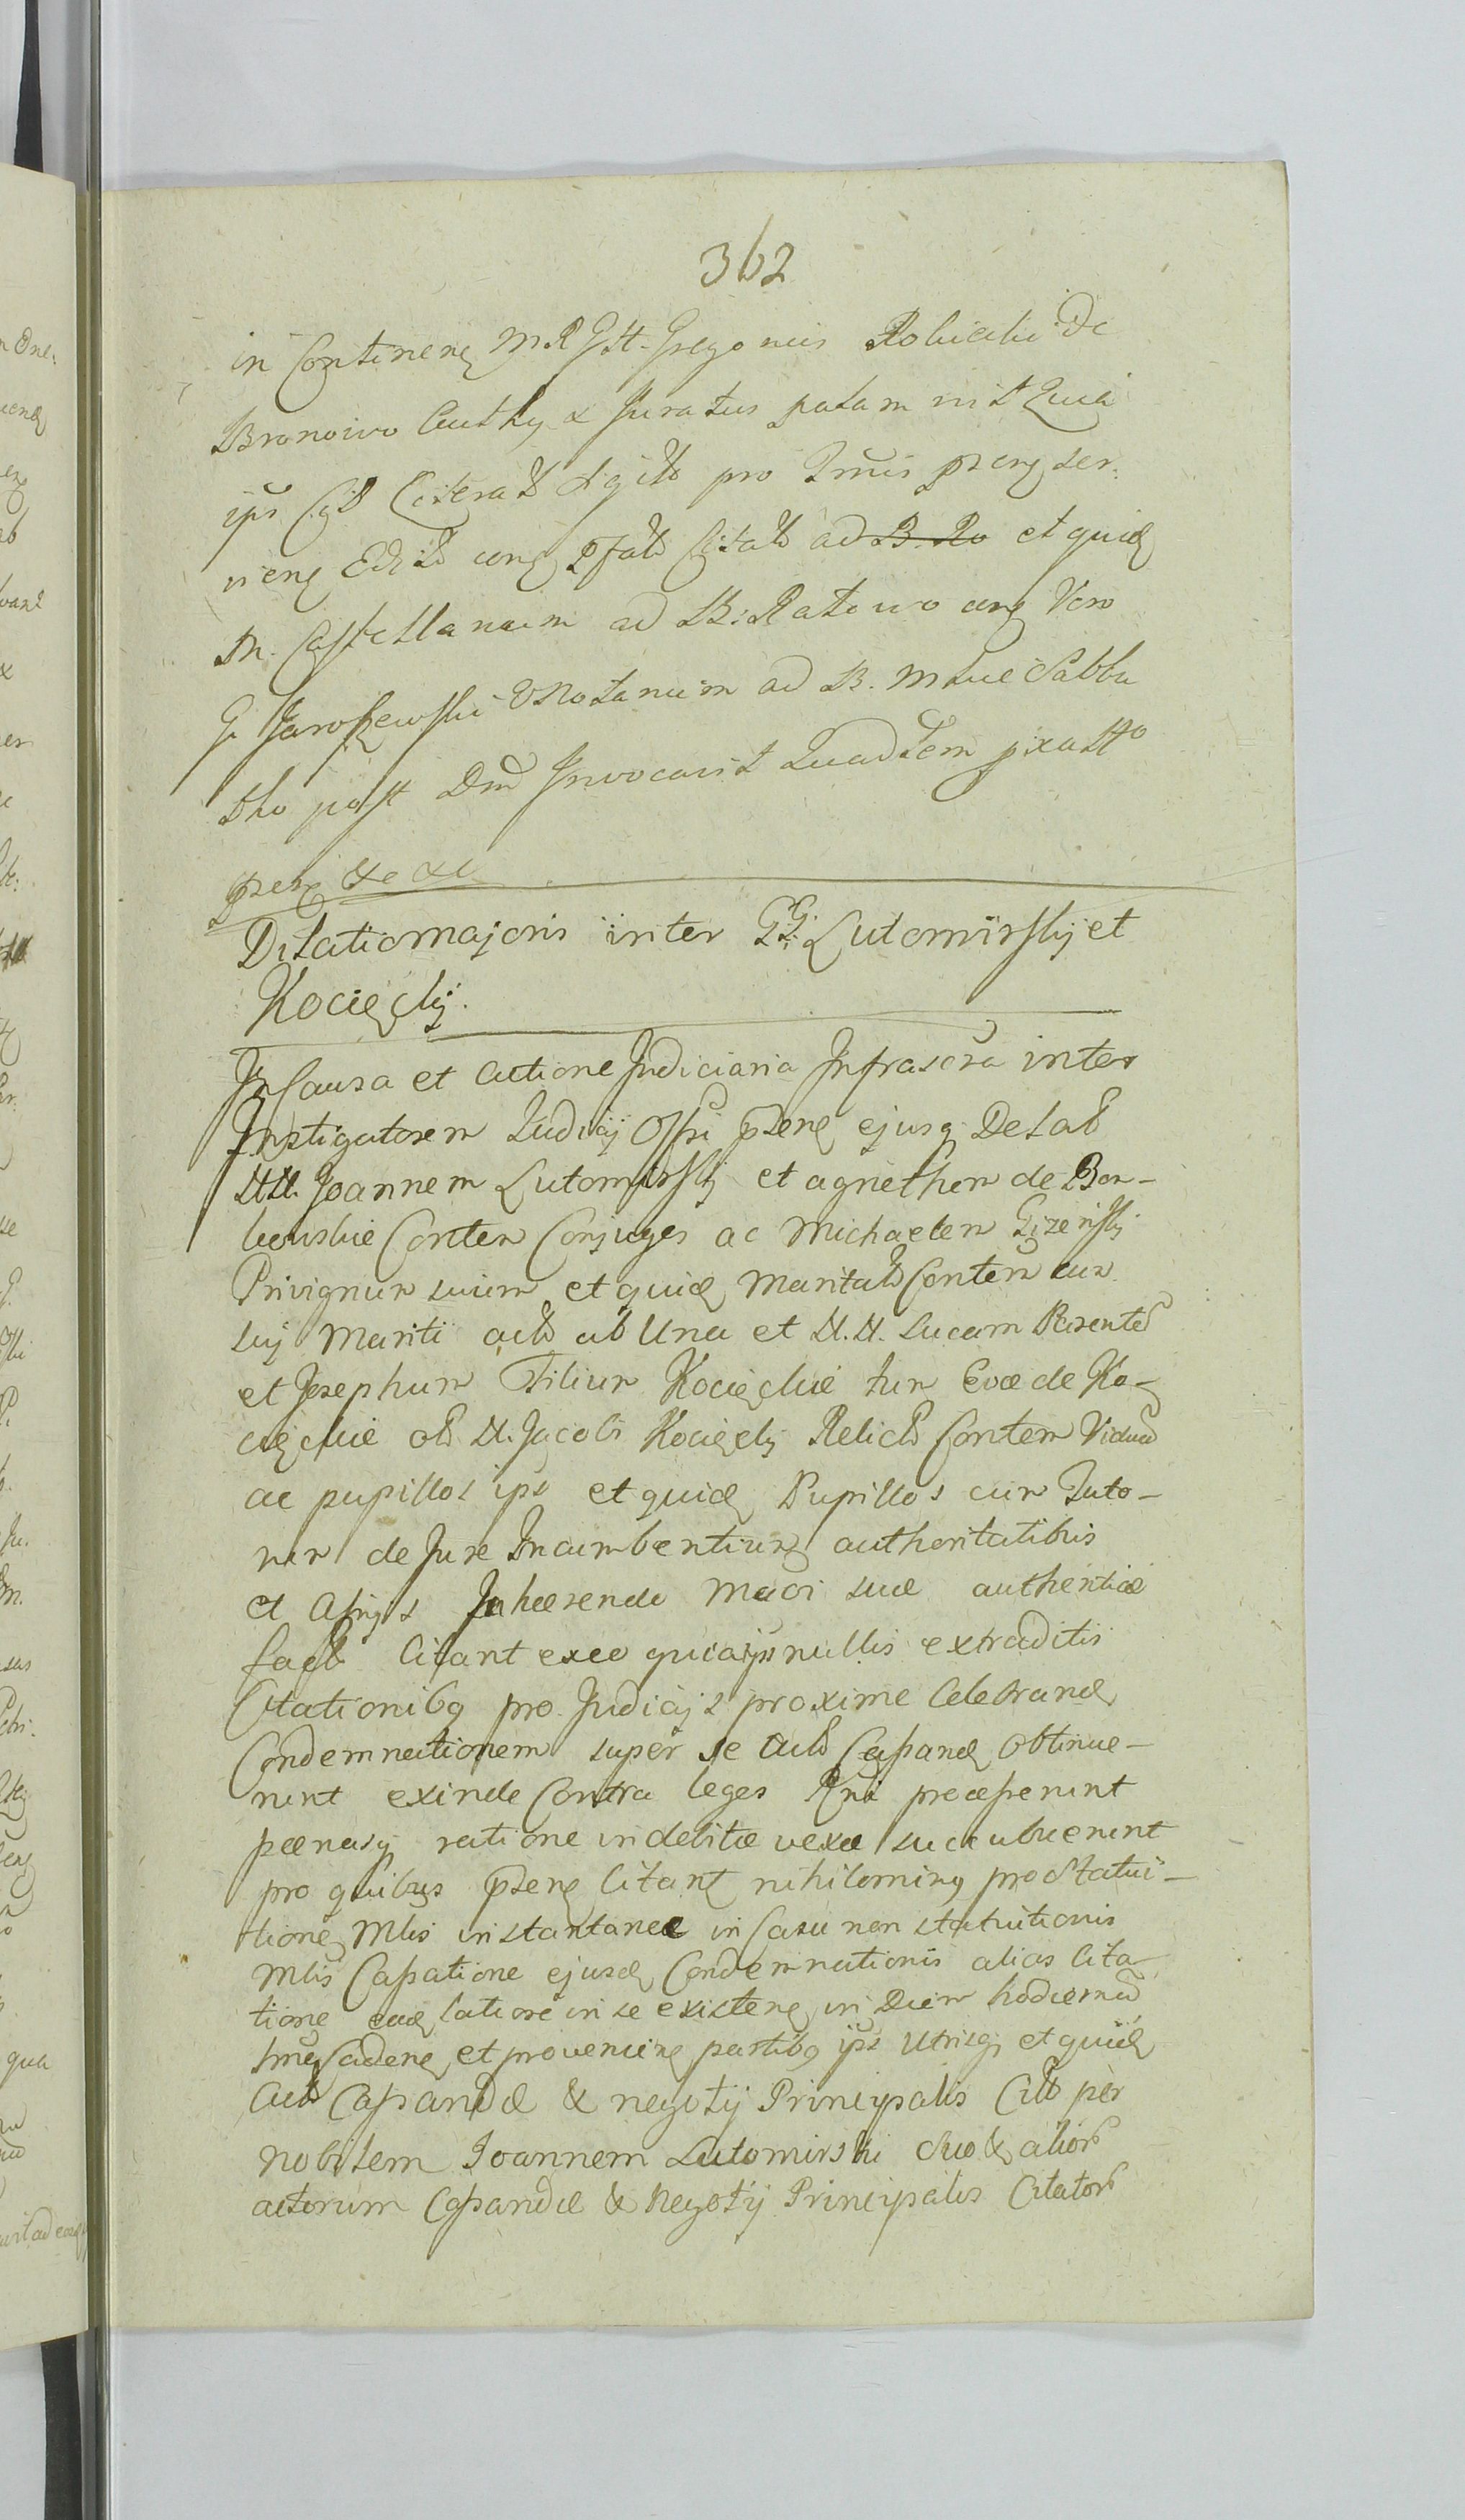 362
in Continenᶒ M R G H. Gregorius Robieski De
Bronowo Authᶒ & Juratus palam rilt Quia
ips Citt Literatt Sigill pro Tmis pzenᶒ ser:
viens Edilt unᶒ pfatt Citatt ad B. Ro et quidᶒ
M. Castellanum ad B: Ratowo unᶒ Vero
G Jaroszewski VNotarium ad B. Mlue Sabba
tho post Dm̄ Invocavit Quadlem pixatto
pzetᶒ &c &c
Dilatio majoris inter GG: Lutomirskij et
Kocięckij.
In Causa et actione Judiciaria Infrascra inter
Instigatorem Judicij Offi pzenᶒ ejusqᶒ Delatt
NN. Joannem Lutomirskij et agnethem de Bor-
kowskie Conten Conjuges ac Michaelem Gizenskij
Privignum suum et quidᶒ Maritatt Contem cum
suj Mariti actt ab Una et N. N. Lucam Parentē
et Josephum Filium Kocięckie tum Evæ de Ko-
cięckie ol N. Jacobi Kocięckij Relictt Contem Viduā
ac pupillos ips et quidᶒ Pupillos cum Tuto-
rum de Jure Incumbentium authoritatibus
et Assijs Inhærendo maoi suæ authenticæ
factt Citant exeo quia ips nullis extraditis
Citationibq pro Judicijs proxime Celebrandᶒ
Condemnationem super se Actt Cassandᶒ obtinue-
runt exinde Contra leges Rni præceperunt
pænasqᶒ ratione indebitæ vexæ succubuerunt
pro quibus pzenᶒ Citant nihilominᶒ pro Statui-
tione Mlis instantanee in Casu non statuitionis
Mlis Cassatione ejusdᶒ Condemnationis alias Cita-
tione eadᶒ latiore in se existene in Diem hodiernā
tmᶒ Cadenᶒ et provenienᶒ partibq ips Utrisqᶒ et quidᶒ
Actt Cassandæ & negotij Principalis Citt per
Nobilem Joannem Lutomirski Suo & alior
actorum Cassandæ & Negotij Principalis Citator